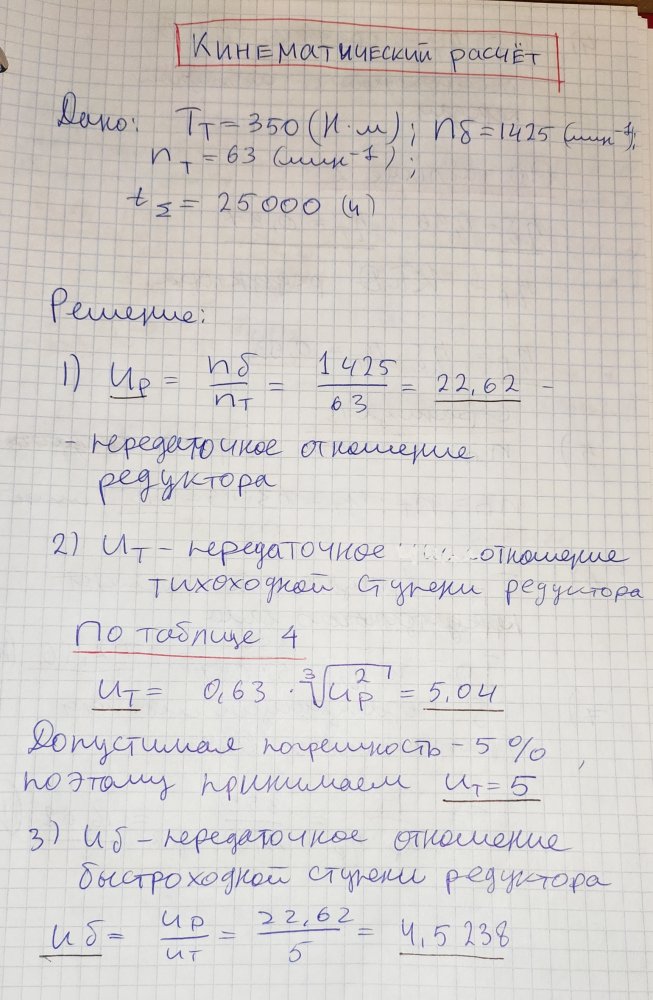 Кинематический расчёт
Дано: Tт = 350 (Н·м); nб = 1425 (мин⁻¹);
nт = 63 (мин⁻¹);
tΣ = 25000 (ч)
Решение:
1) Uр = nб/nт = 1425/63 = 22,62 -
- передаточное отношение
редуктора
2) Uт - передаточное отношение
тихоходной ступени редуктора
По таблице 4
Uт = 0,63 · ∛Uр² = 5,04
Допустимая погрешность - 5 %,
поэтому принимаем Uт = 5
3) Uб - передаточное отношение
быстроходной ступени редуктора
Uб = Uр/Uт = 22,62/5 = 4,5238